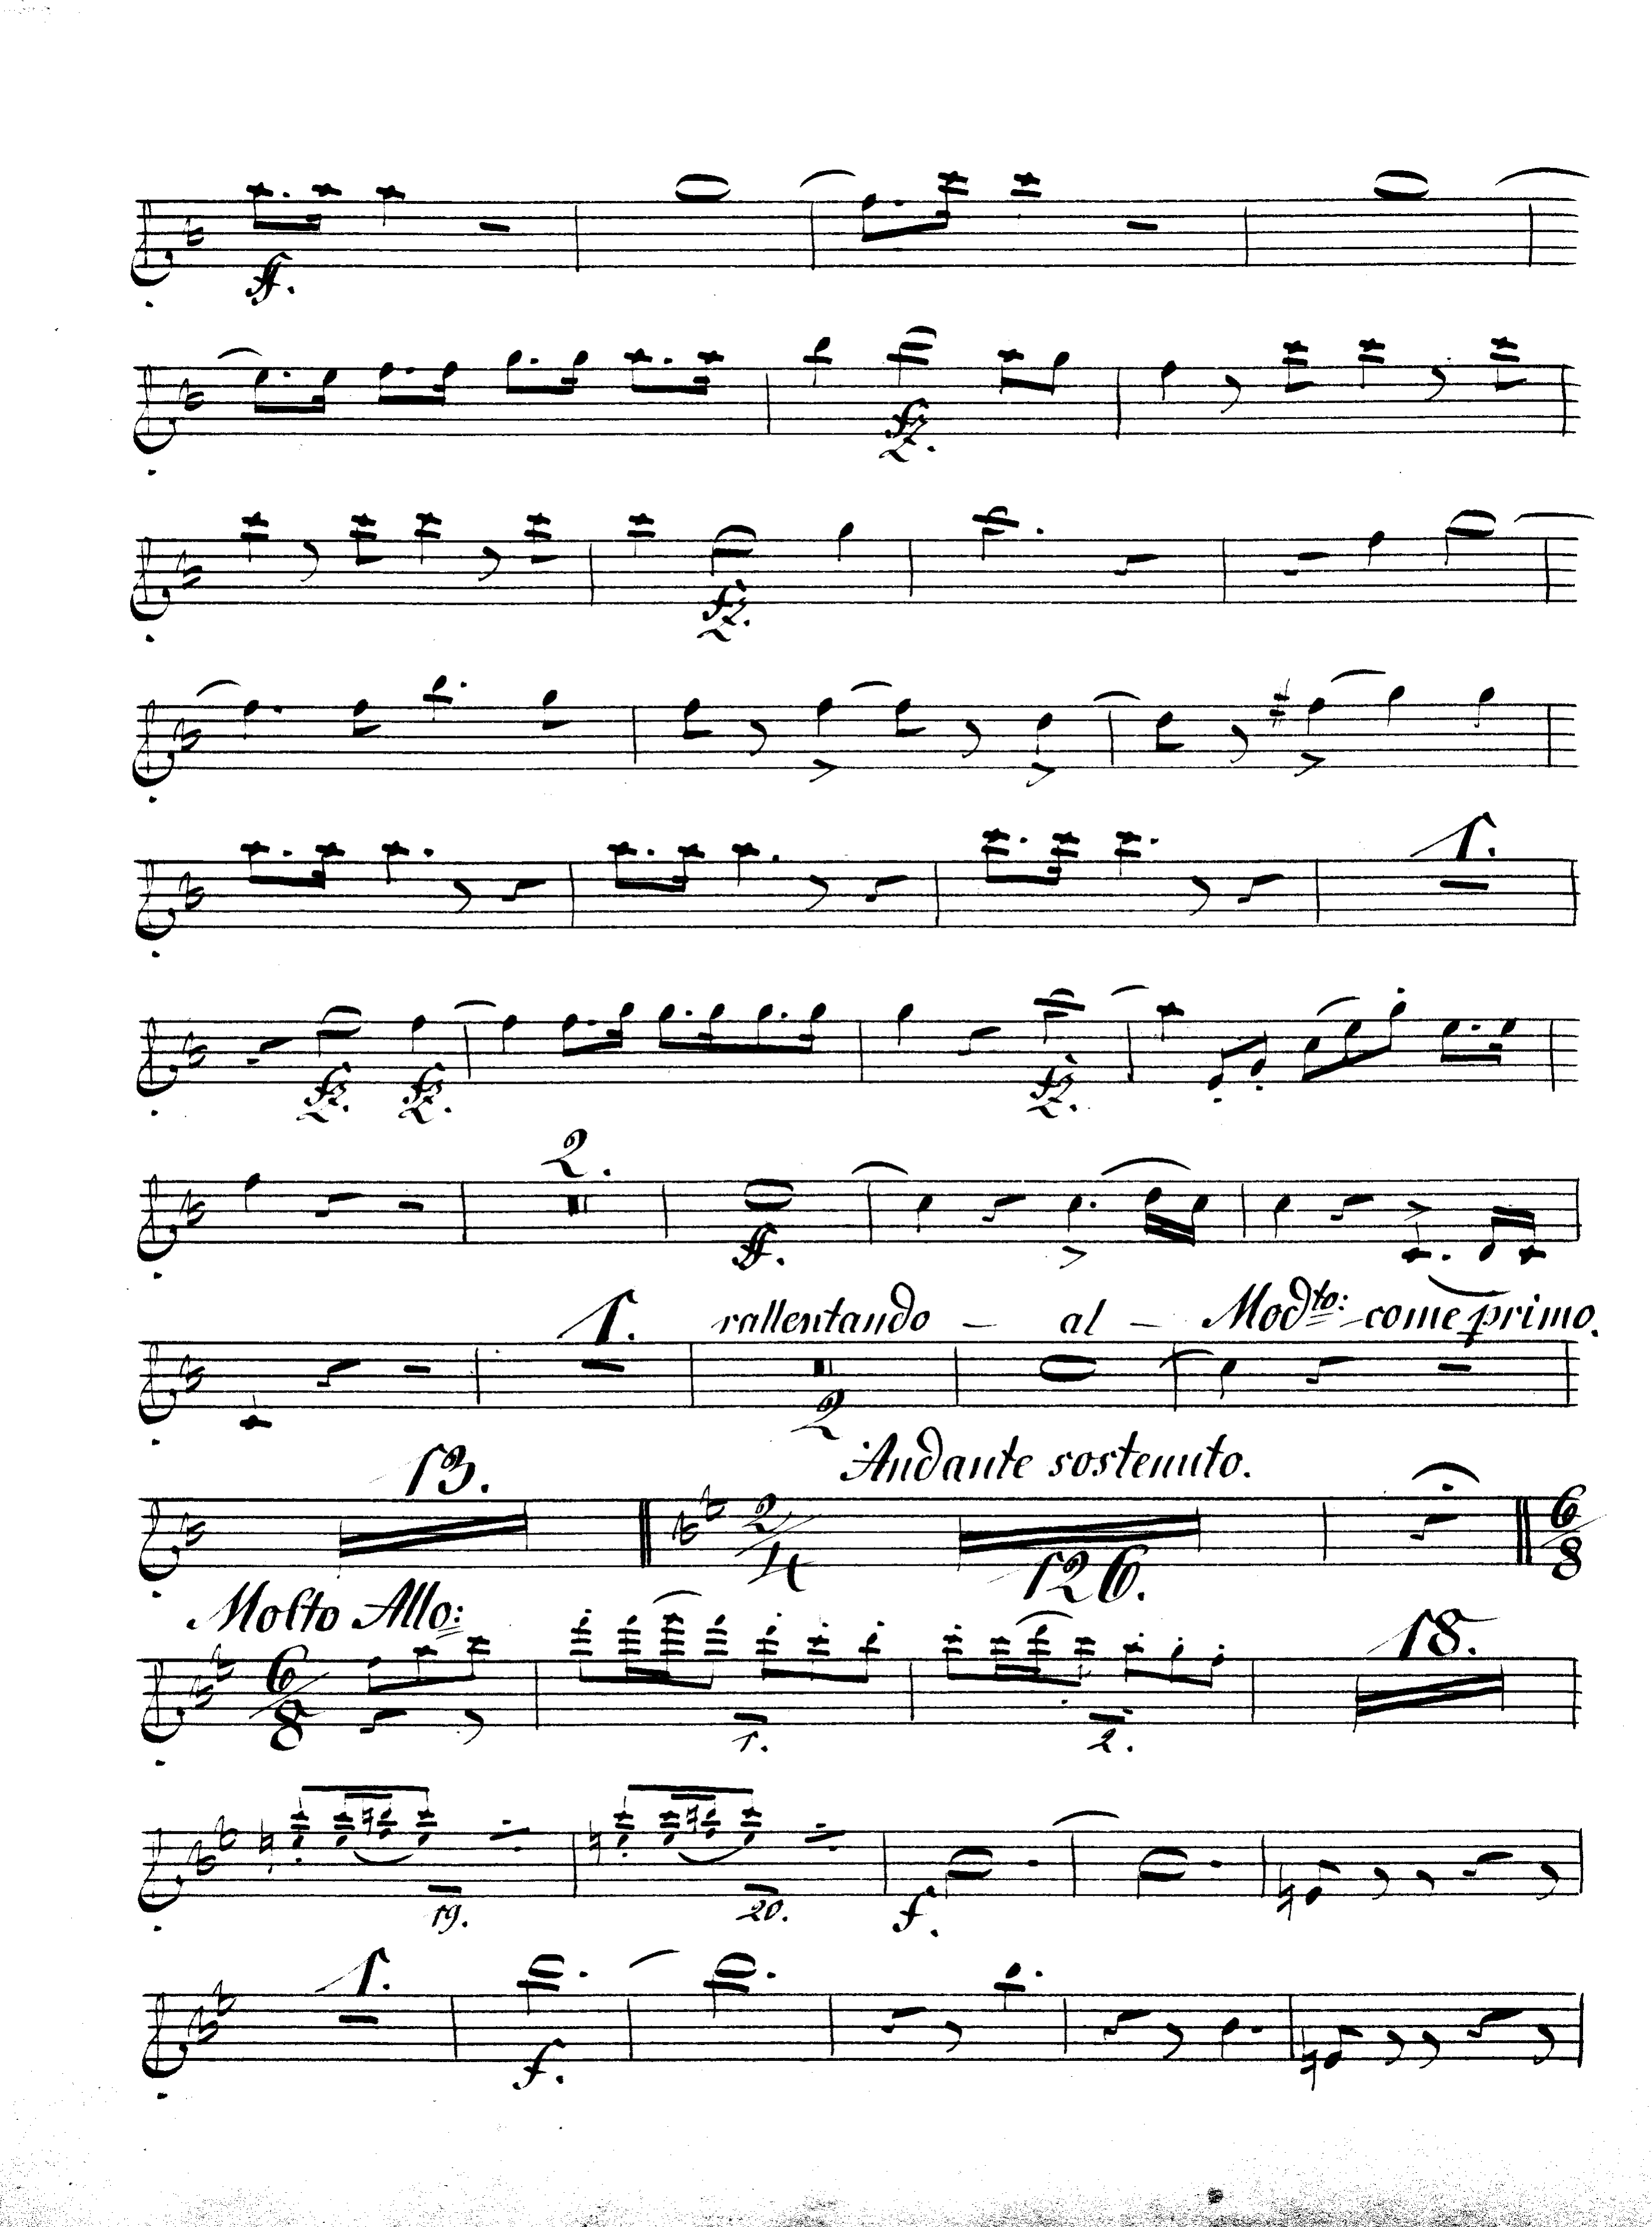 ff.
fz.
fz.
1.
fz. fz. fz.
2.
ff.
1. rallentando – al – Modto: come primo.
2
13. Andante sostenuto.
2/4 126. 6/8
Molto Allo:
6/8 18.
1. 2.
19. 20. f.
1.
f.